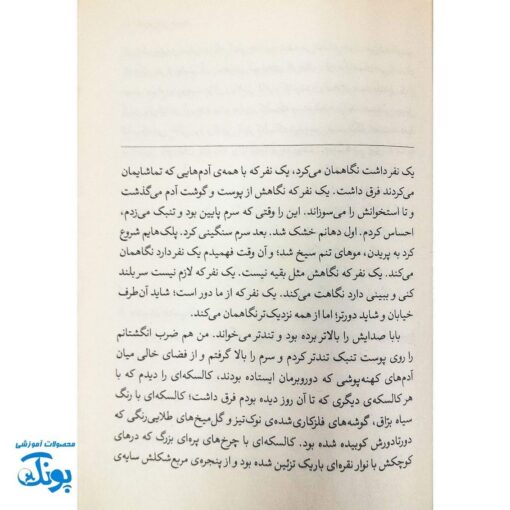 یک نفر داشت نگاهمان می‌کرد، یک نفر که با همه‌ی آدم‌هایی که تماشایمان
می‌کردند فرق داشت. یک نفر که نگاهش از پوست و گوشت آدم می‌گذشت
و تا استخوانش را می‌سوزاند. این را وقتی که سرم پایین بود و تنبک می‌زدم،
احساس کردم. اول دهانم خشک شد. بعد سرم سنگینی کرد. پلک‌هایم شروع
کرد به پریدن، موهای تنم سیخ شد؛ و آن وقت فهمیدم یک نفر دارد نگاهمان
می‌کند. یک نفر که نگاهش مثل بقیه نیست. یک نفر که لازم نیست سر بلند
کنی و ببینی دارد نگاهت می‌کند. یک نفر که از ما دور است؛ شاید آن‌طرف
خیابان و شاید دورتر؛ اما از همه نزدیک‌تر نگاهمان می‌کند.
بابا صدایش را بالاتر برده بود و تندتر می‌خواند. من هم ضرب انگشتانم
را روی پوست تنبک تندتر کردم و سرم را بالا گرفتم و از فضای خالی میان
آدم‌های کهنه‌پوشی که دوروبرمان ایستاده بودند، کالسکه‌ای را دیدم که با
هر کالسکه‌ی دیگری که تا آن روز دیده بودم فرق داشت؛ کالسکه‌ای با رنگ
سیاه براق، گوشه‌های فلزکاری‌شده‌ی نوک‌تیز و گل‌میخ‌های طلایی‌رنگی که
دورتادورش کوبیده شده بود. کالسکه‌ای با چرخ‌های پره‌ای بزرگ که درهای
کوچکش با نوار نقره‌ای باریک تزئین شده بود و از پنجره‌ی مربع‌شکلش سایه‌ی
محصولات آموزشی
پونک